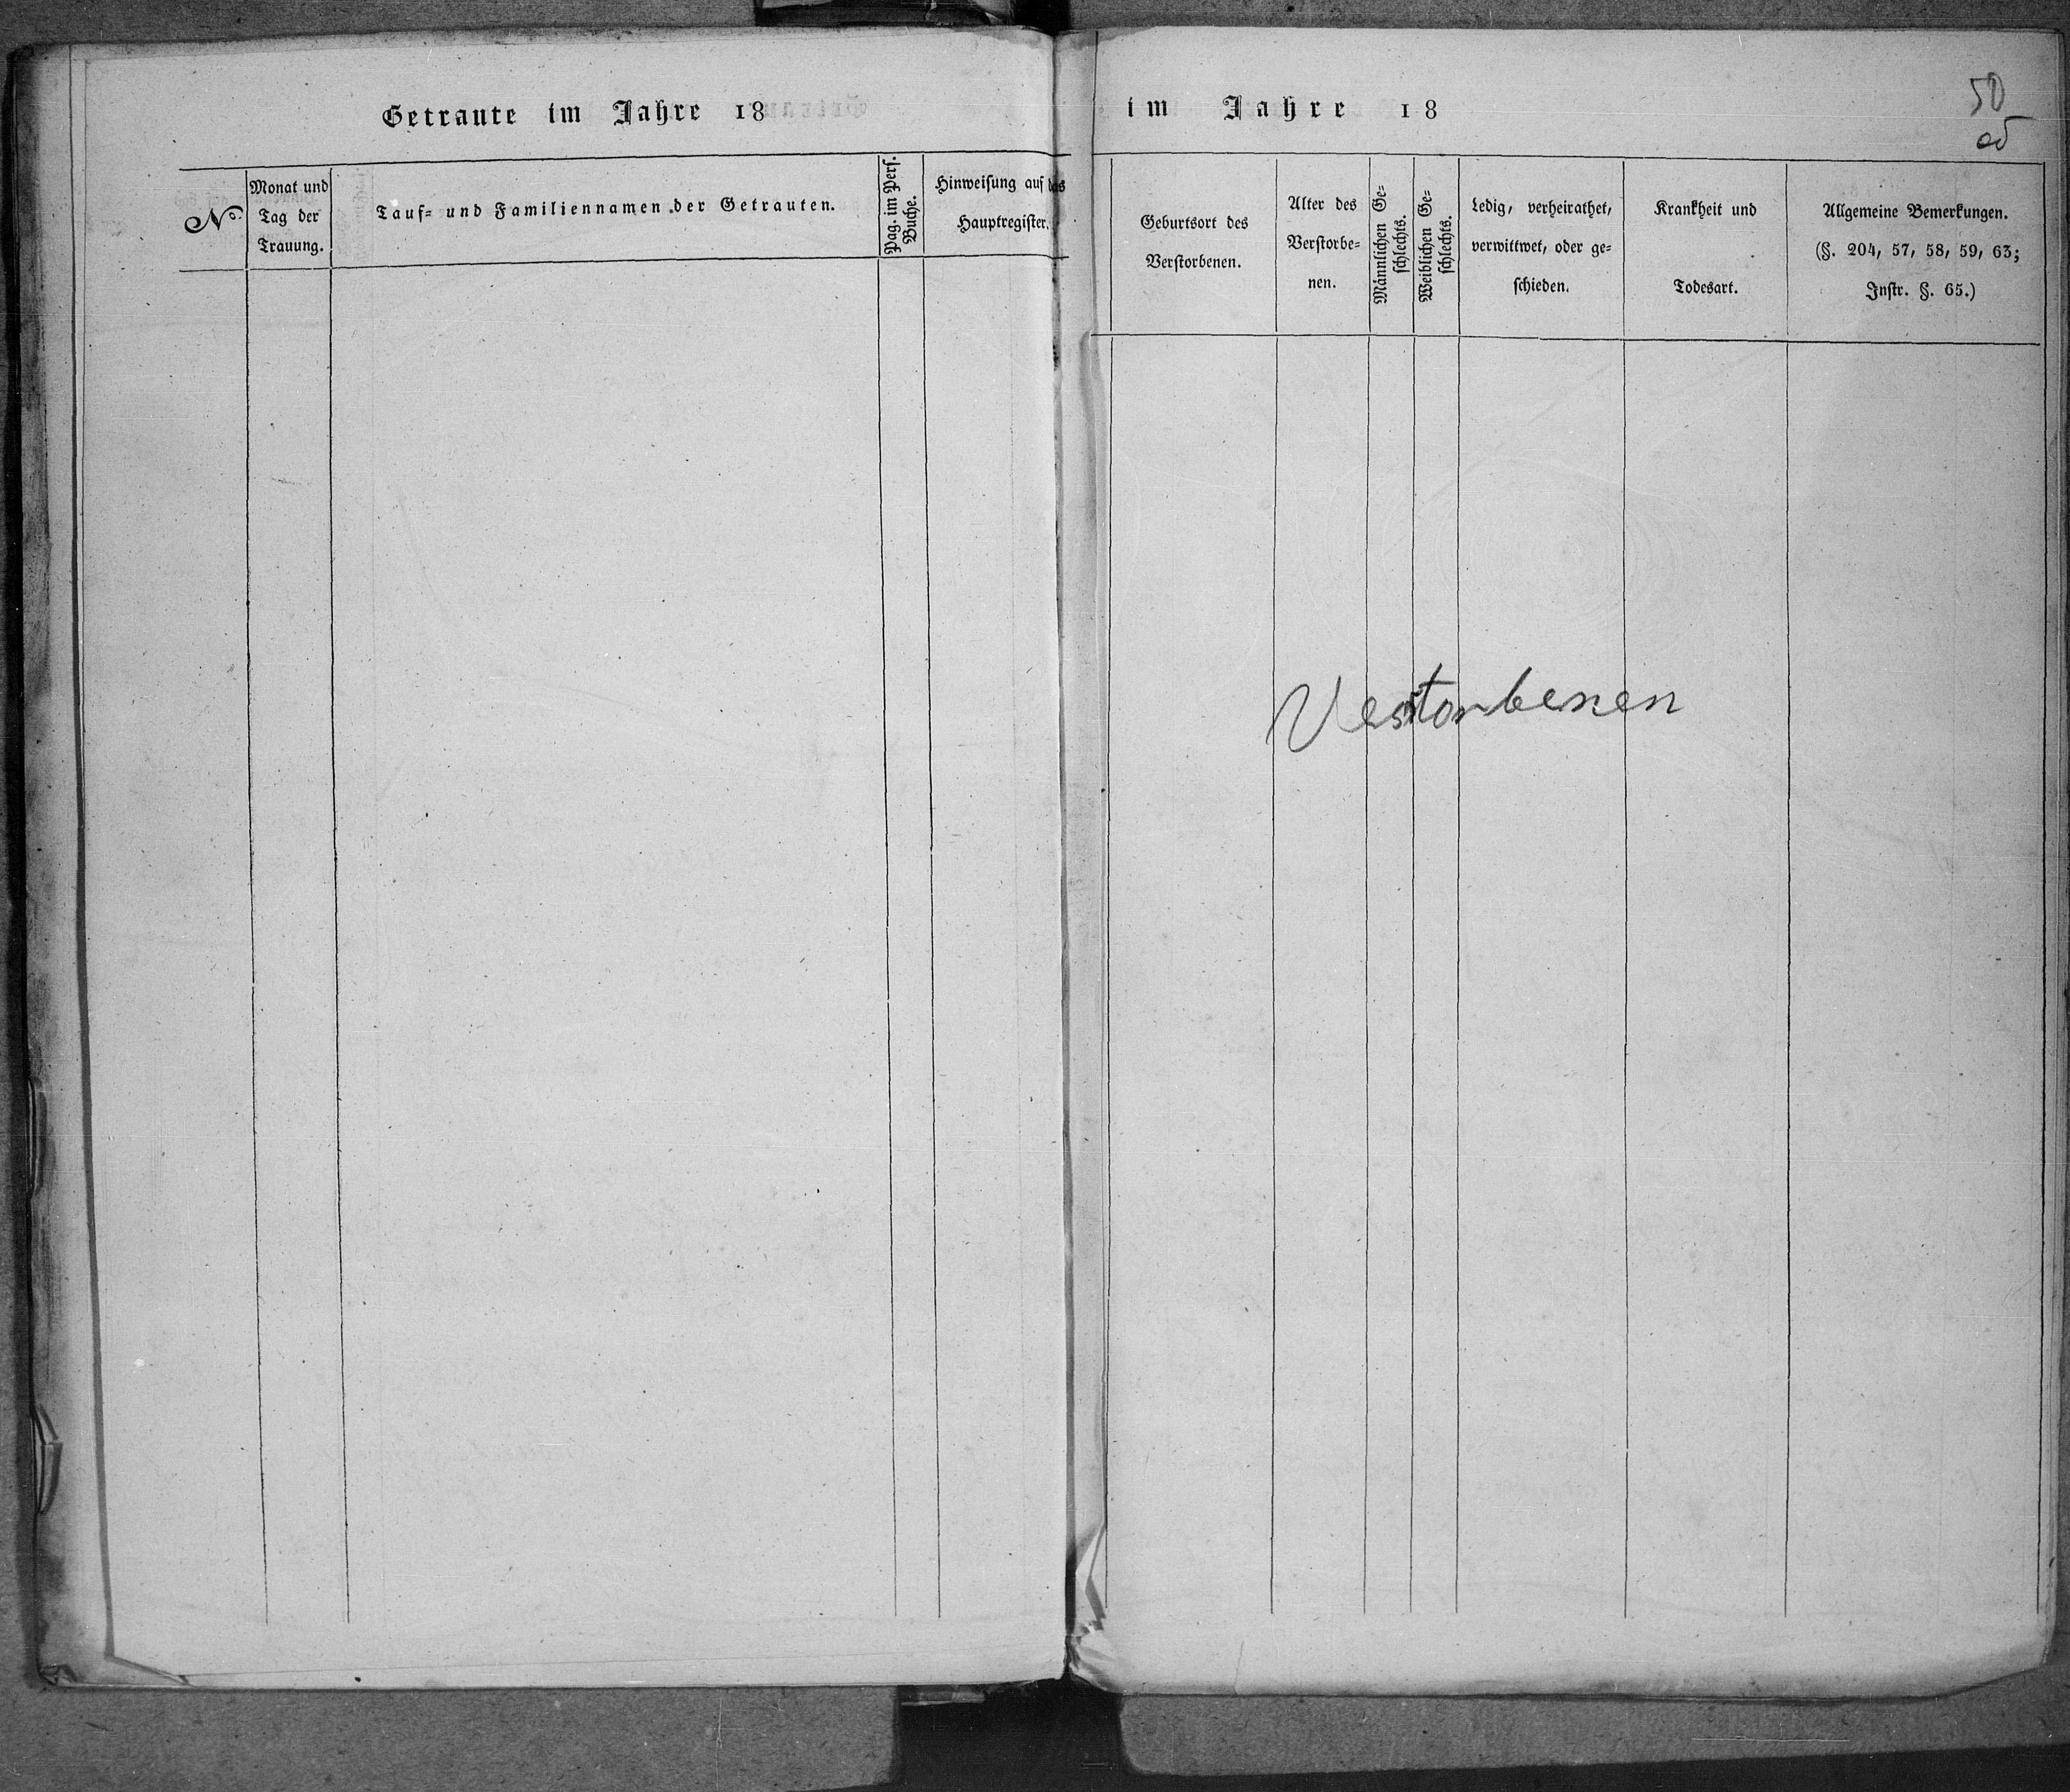 Getraute im Jahre 18
№
Monat und
Tag der
Trauung.
Tauf- und Familiennamen der Getrauten.
Pag. im Pers.
Buche.
Hinweisung auf das
Hauptregister.
im Jahre 18
50
Geburtsort des
Verstorbenen.
Alter des
Verstorbe-
nen.
Männlichen Ge-
schlechts.
Weiblichen Ge-
schlechts.
Ledig, verheirathet,
verwittwet, oder ge-
schieden.
Krankheit und
Todesart.
Allgemeine Bemerkungen.
(§. 204, 57, 58, 59, 63;
Instr. §. 65.)
Verstorbenen